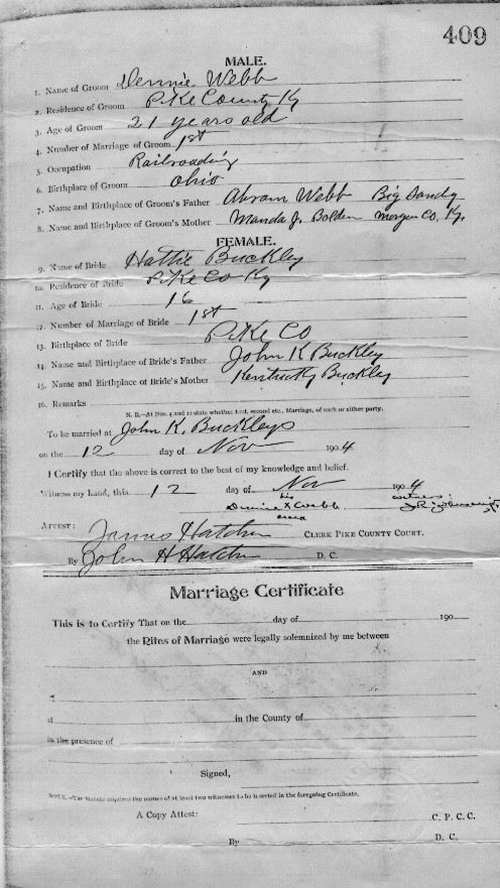 409
MALE.
1. Name of Groom Dennie Webb
2. Residence of Groom Pike County Ky
3. Age of Groom 21 years old
4. Number of Marriage of Groom 1st
5. Occupation Railroading
6. Birthplace of Groom Ohio
7. Name and Birthplace of Groom's Father Abram Webb Big Sandy
8. Name and Birthplace of Groom's Mother Manda J. Bolden Morgan Co, Ky.
FEMALE.
9. Name of Bride Hattie Buckley
10. Residence of Bride Pike Co Ky
11. Age of Bride 16
12. Number of Marriage of Bride 1st
13. Birthplace of Bride Pike Co
14. Name and Birthplace of Bride's Father John K Buckley
15. Name and Birthplace of Bride's Mother Kentucky Buckley
16. Remarks
N. B.—At Nos. 4 and 12 state whether 1st, second etc., Marriage, of each or either party.
To be married at John K. Buckleys
on the 12 day of Nov 1904
I Certify that the above is correct to the best of my knowledge and belief.
Witness my hand, this 12 day of Nov 1904
his witness
Dennie X Webb
mark
Attest: James Hatcher Clerk Pike County Court.
By John H Hatcher D. C.
Marriage Certificate
This is to Certify That on the day of 190
the Rites of Marriage were legally solemnized by me between
AND
at in the County of
in the presence of
Signed,
Note.—The Statute requires the names of at least two witnesses to be inserted in the foregoing Certificate.
A Copy Attest: C. P. C. C.
By D. C.